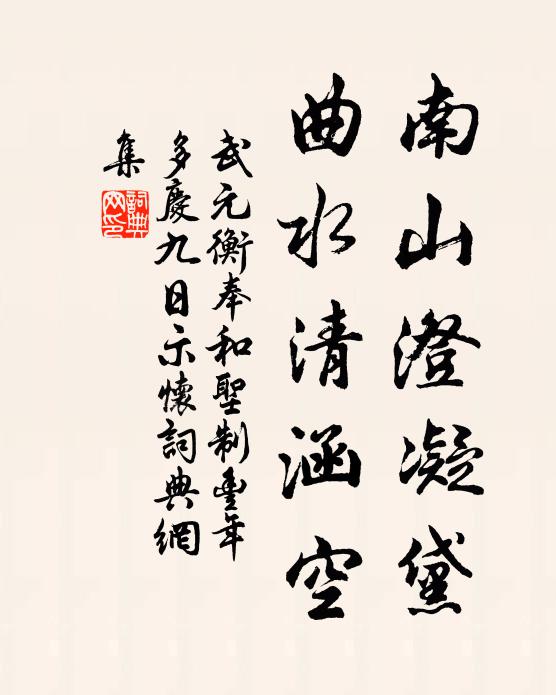 南山澄凝黛
曲水清涵空
武元衡奉和聖制豊年
多慶九日示懷詞典網
集
詞典
网印